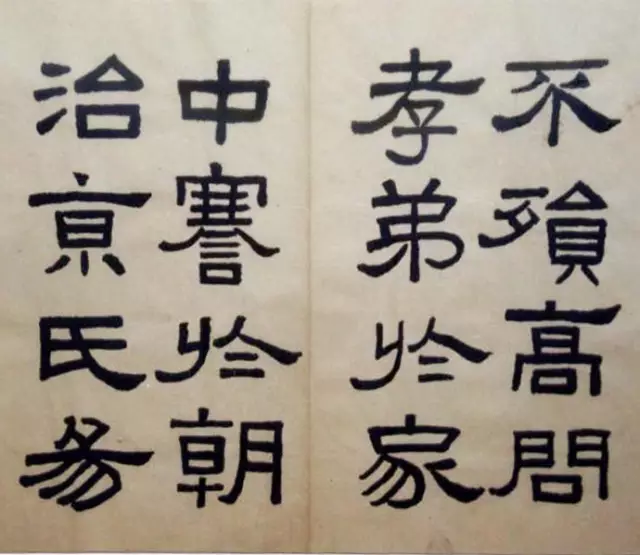 不殞高問
孝弟於家
中謇於朝
治京氏易